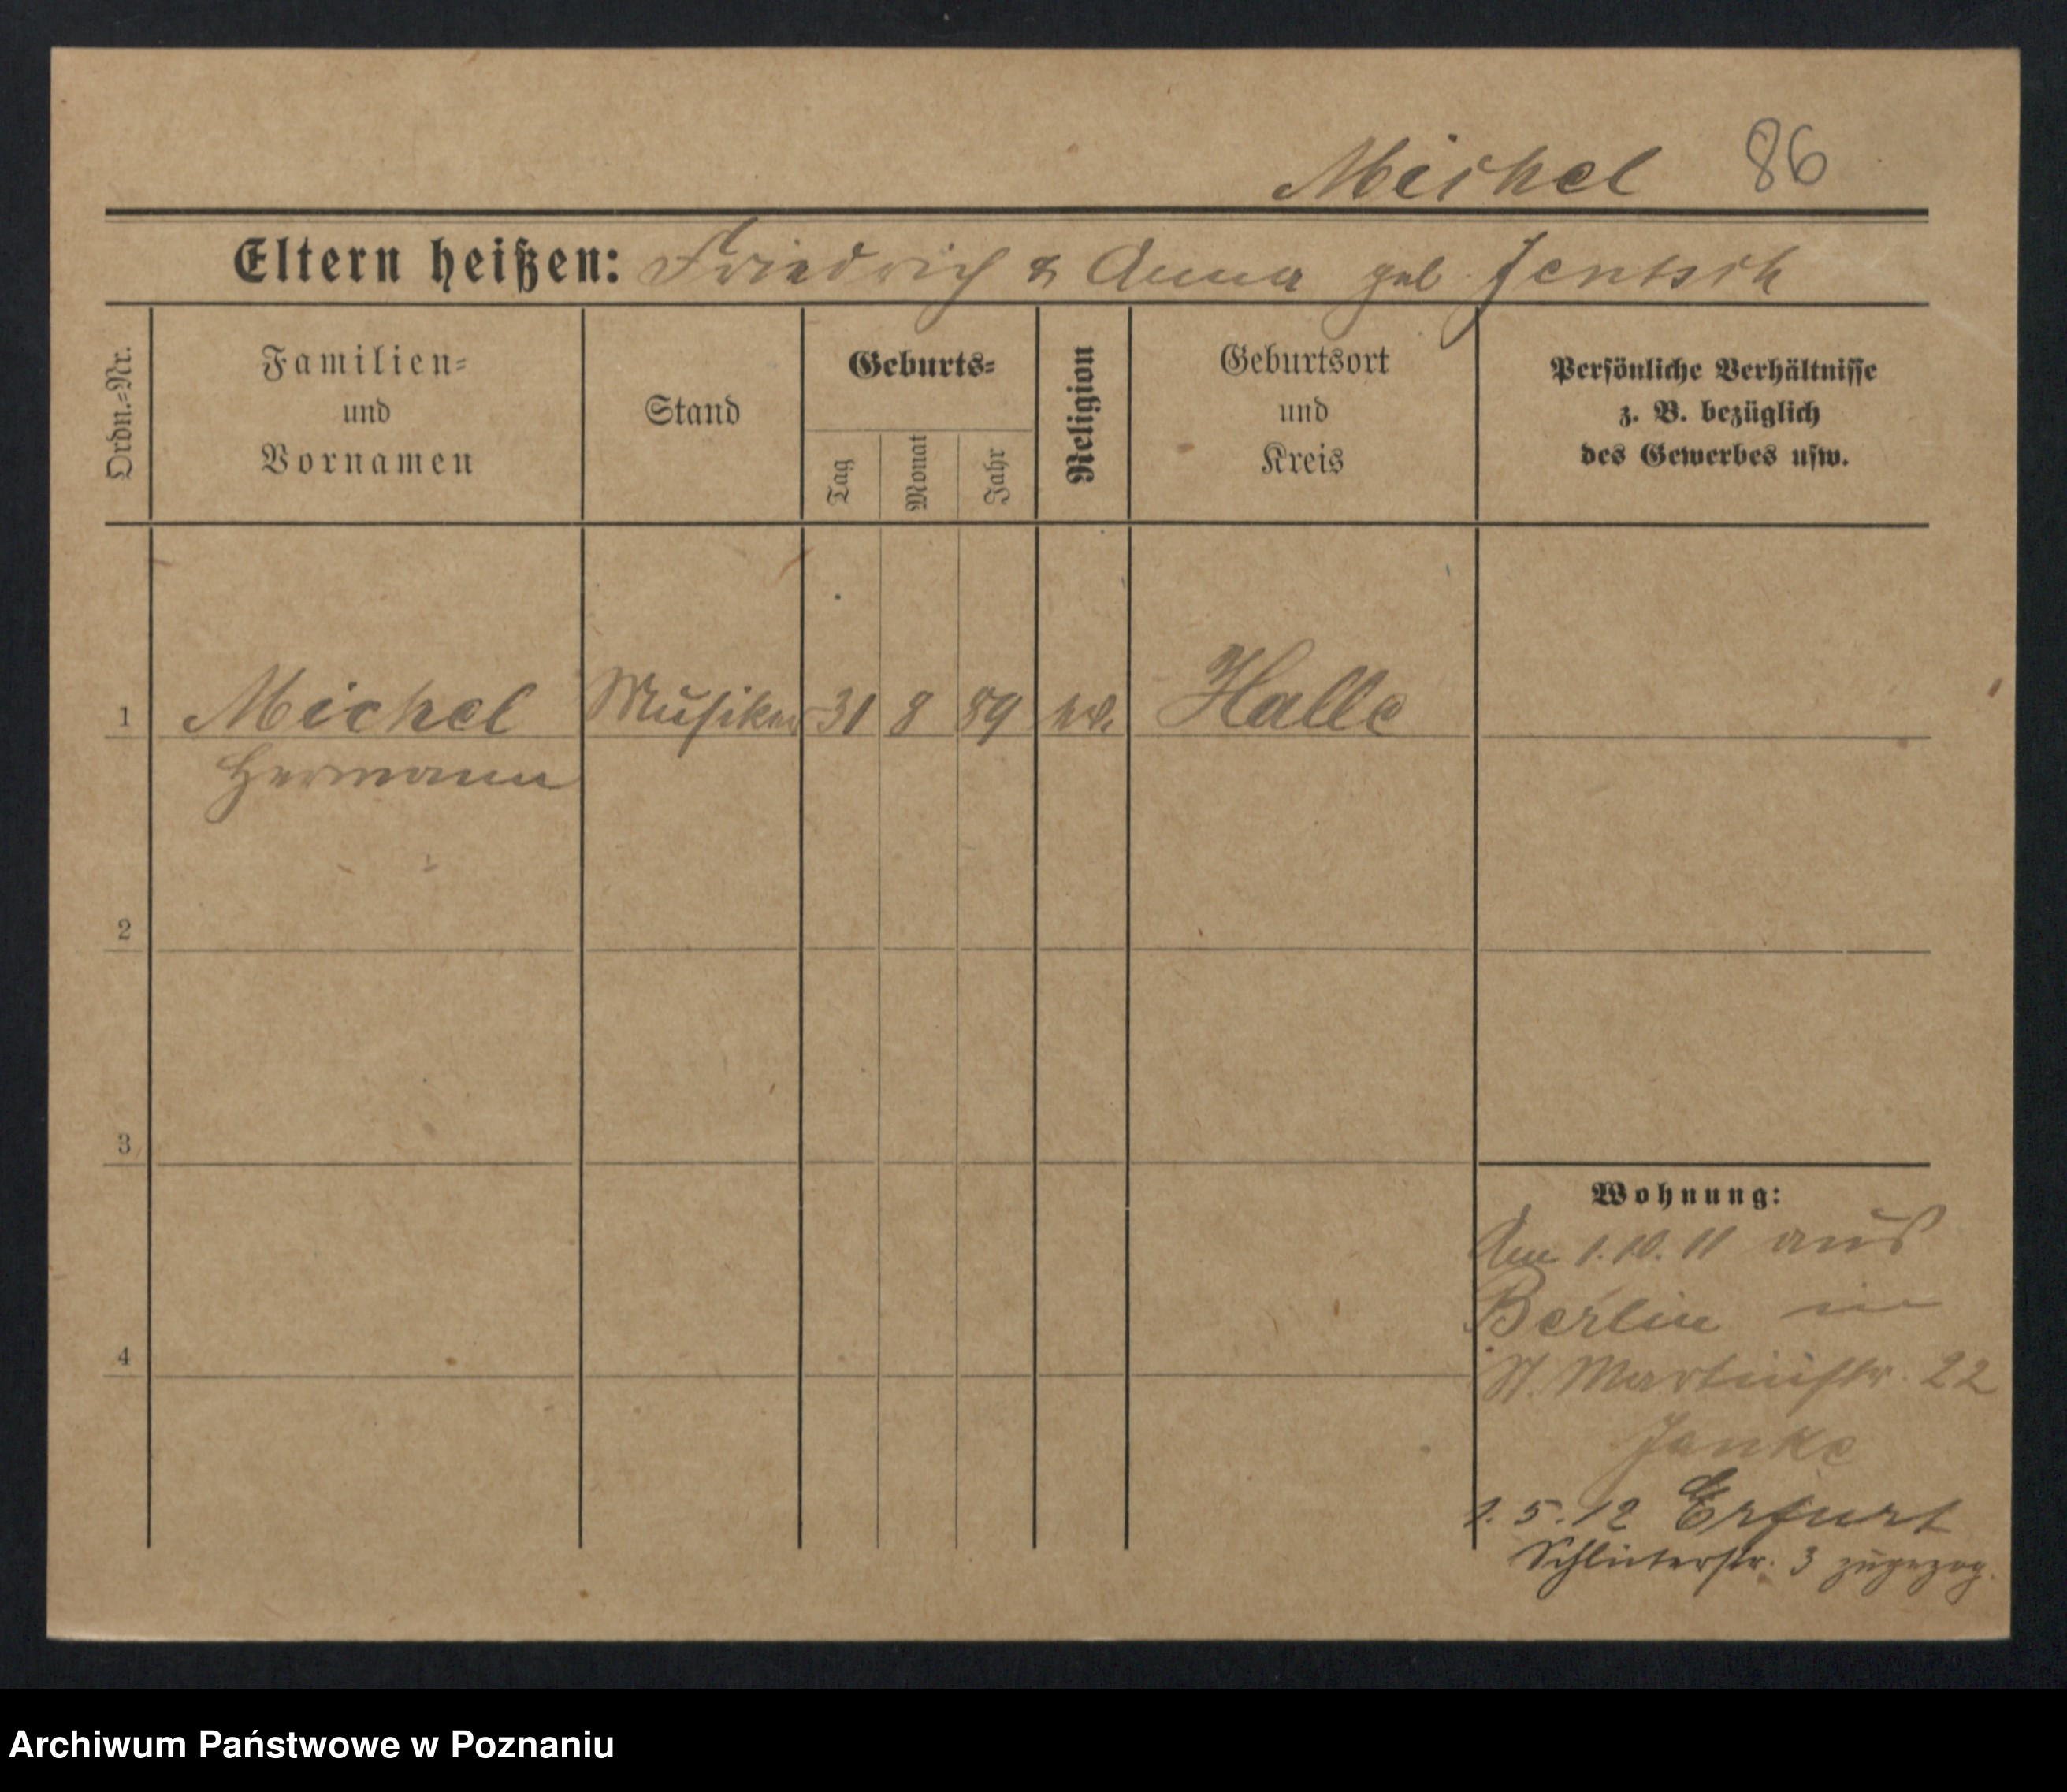 Michel 86
Eltern heißen: Friedrich & Anna geb Jentsch
Ordn.=Nr.
Familien=
und
Vornamen
Stand
Geburts=
Tag
Monat
Jahr
Religion
Geburtsort
und
Kreis
Persönliche Verhältnisse
z. B. bezüglich
des Gewerbes usw.
1 Michel Musiker 31 8 89 ev. Halle
Hermann
2
3
4
Wohnung:
Am 1.10.11 aus
Berlin in
St. Martinstr. 22
Janke
1.5.12 Erfurt
Schlüterstr. 3 zugezog.
Archiwum Państwowe w Poznaniu